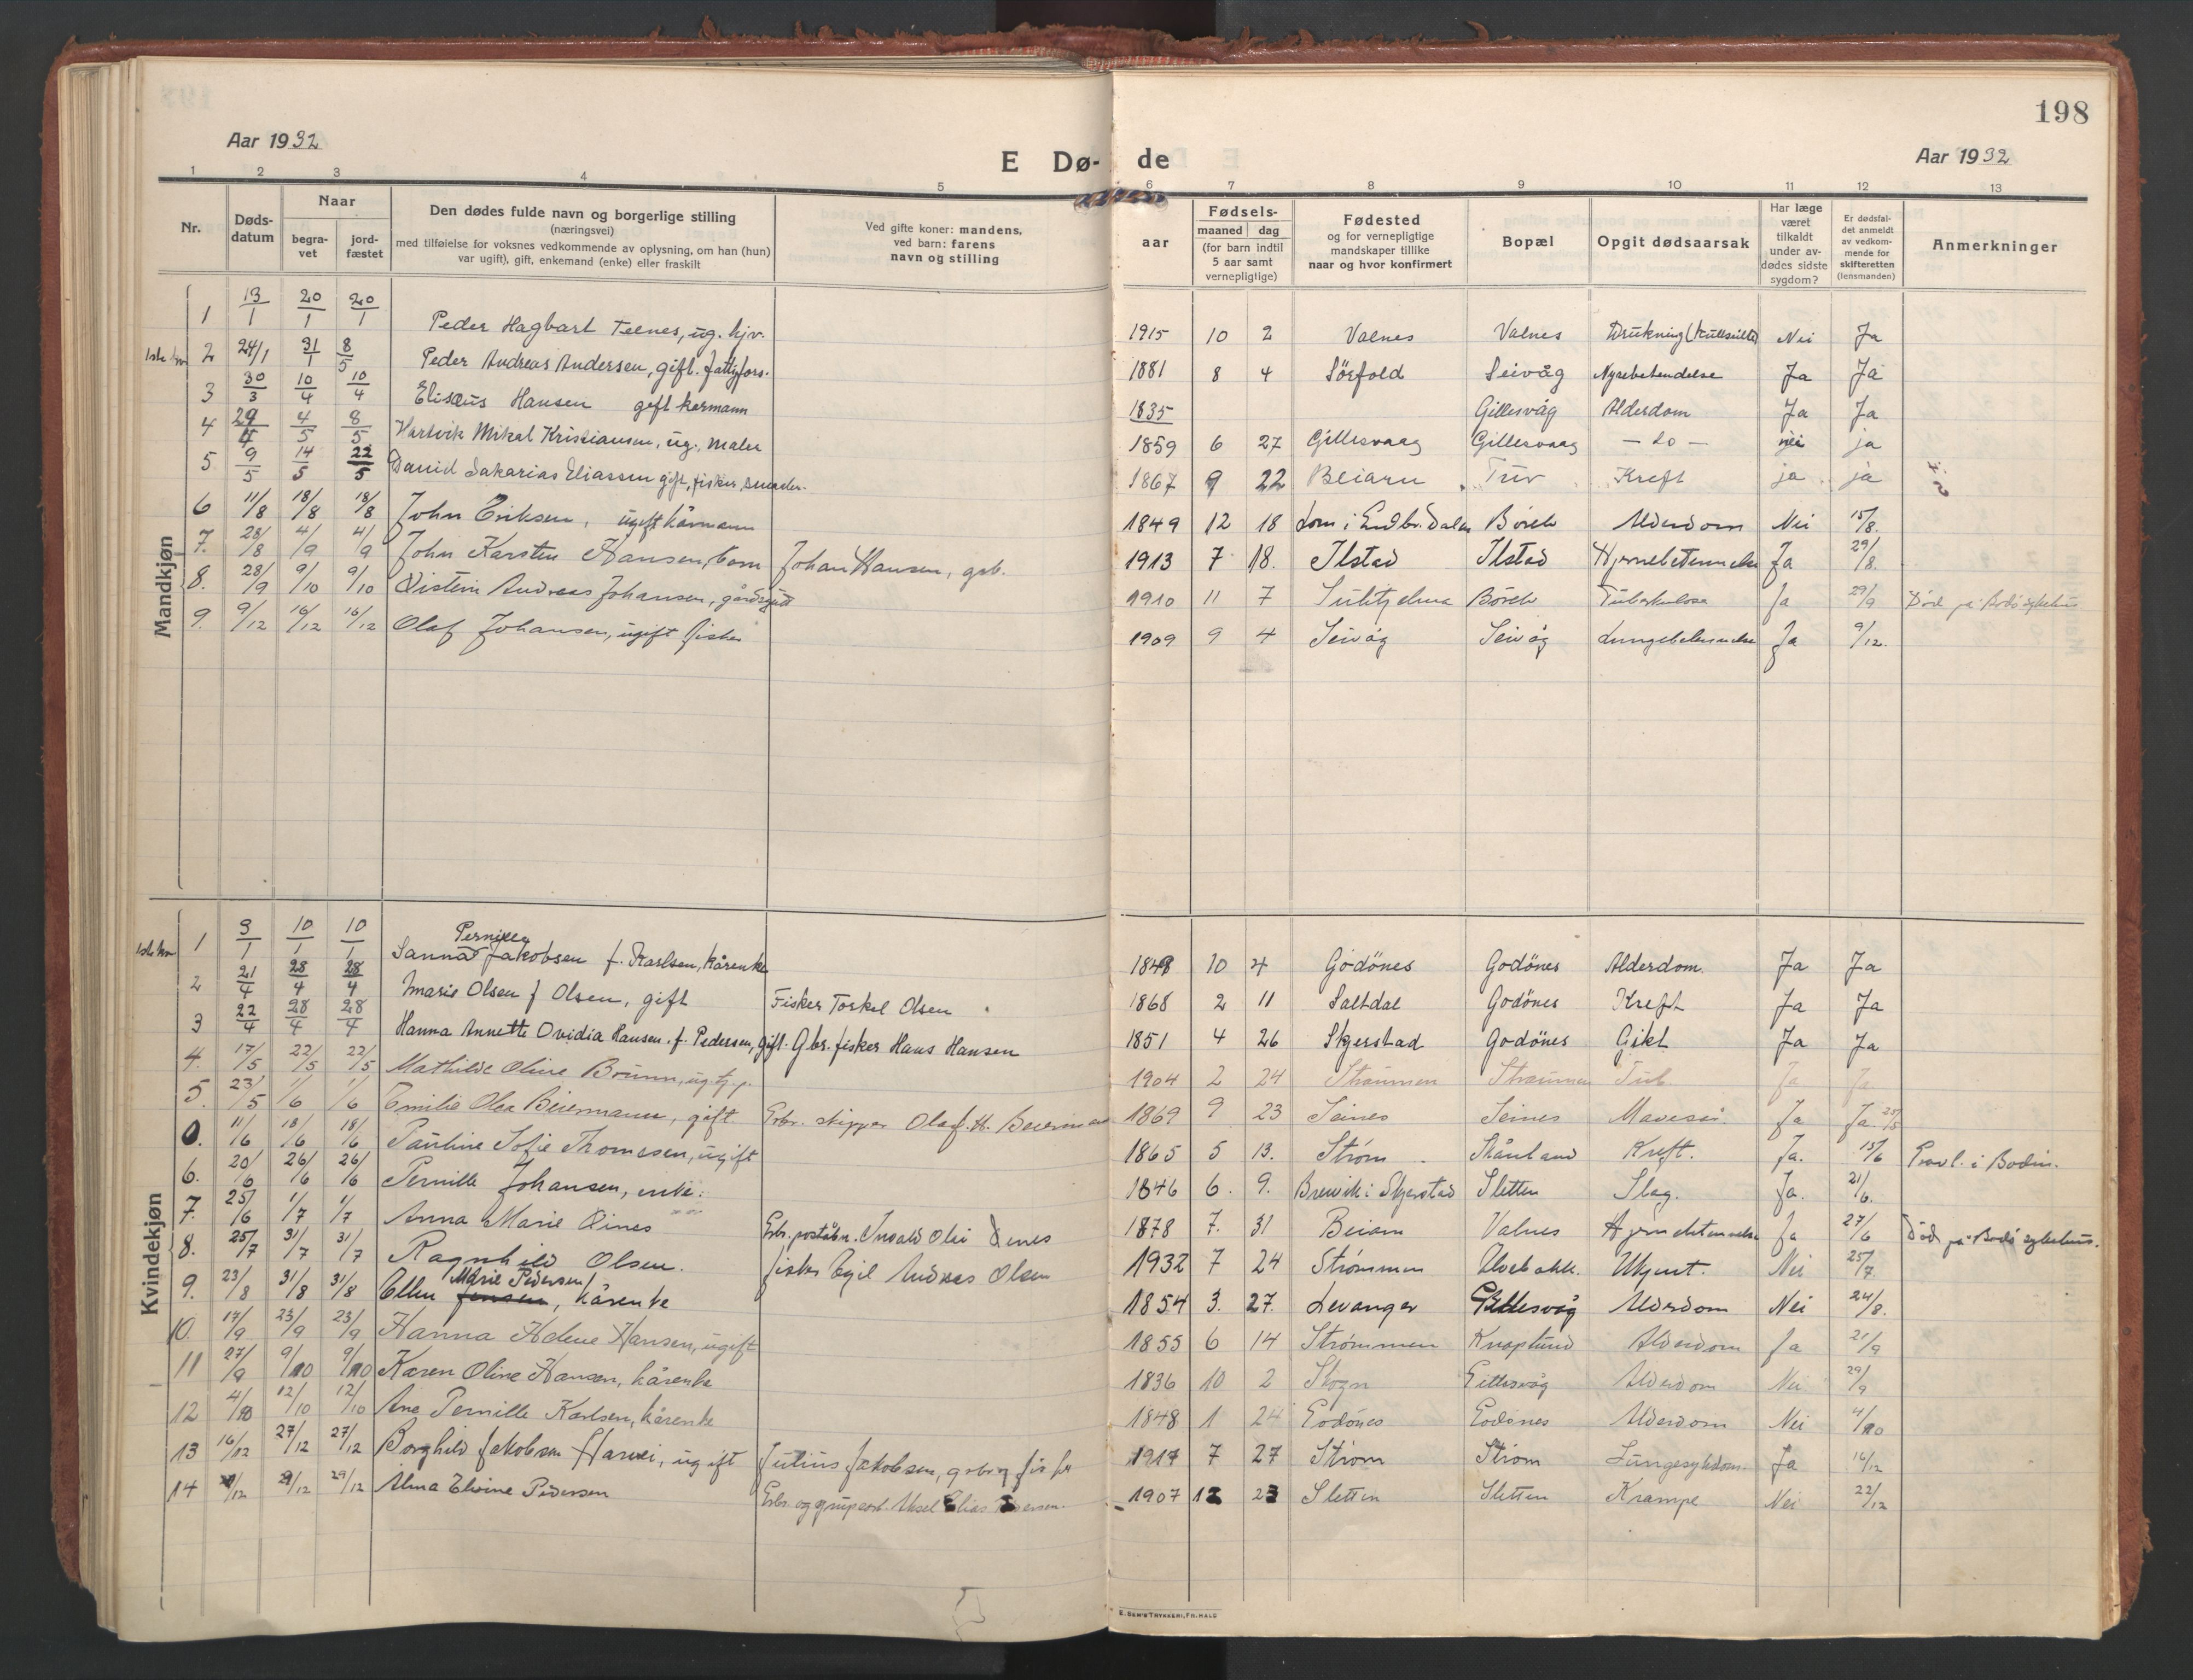 198
Aar 1932
E Dø- de
Aar 1932
1 2 3 4 5 6 7 8 9 10 11 12 13
Nr.
Døds-
datum
Naar
begra-
vet
jord-
fæstet
Den dødes fulde navn og borgerlige stilling
(næringsvei)
med tilføielse for voksnes vedkommende av oplysning, om han (hun)
var ugift), gift, enkemand (enke) eller fraskilt
Ved gifte koner: mandens,
ved barn: farens
navn og stilling
aar
Fødsels-
maaned dag
(for barn indtil
5 aar samt
vernepligtige)
Fødested
og for vernepligtige
mandskaper tillike
naar og hvor konfirmert
Bopæl
Opgit dødsaarsak
Har læge
været
tilkaldt
under av-
dødes sidste
sygdom?
Er dødsfal-
det anmeldt
av vedkom-
mende for
skifteretten
(lensmanden)
Anmerkninger
Mandkjøn
1 13/1 20/1 20/1 Peder Hagbart Teenes, ug. hjv. 1915 10 2 Valnes Valnes Drukning Nei Ja
2 24/1 31/1 8/5 Peder Andreas Andersen, gift. fattigfors. 1881 8 4 Sörfold Seivåg Nyrebetendelse Ja Ja
3 30/3 10/4 10/4 Elisæus Hansen gift kårmann 1835 Gillesvåg Alderdom Ja Ja
4 29/4 4/5 8/5 Hartvik Mikal Kristiansen, ug., maler 1859 6 27 Gillesvaag Gillesvaag - do - nei ja
5 9/5 14/5 22/5 David Sakarias Eliassen gift, fisker, 1867 9 22 Beiarn Tuv Kreft ja ja
6 11/8 18/8 18/8 John Eriksen, ugift kårmann 1849 12 18 Lom i Gudbr.dalen Nei 15/8.
Alderdom
7. 28/8 4/9 4/9 John Karsten Hansen, barn Johan Hansen, grb. 1913 7 18. Ilstad Ilstad Ja 29/8.
8. 28/9 9/10 9/10 Øistein Andreas Johansen, gårdsgutt 1910 11 7 Sulitjelma Tuberkulose Ja 29/9 Død på Bodø sykehus
9. 9/12 16/12 16/12 Olaf Johansen, ugift fisker 1909 9 4 Seivåg Seivåg Lungebetennelse Ja 9/12.
Kvindekjøn
Pernille
1 3/1 10/1 10/1 Sanna Jakobsen f. Karlsen, kårenke 1848 10 4 Godönes Godönes Alderdom. Ja Ja
2 21/4 28/4 28/4 Marie Olsen f Olsen, gift Fisker Torkel Olsen 1868 2 11 Saltdal Godönes Kreft Ja Ja
3 22/4 28/4 28/4 Hanna Annette Ovidia Hansen. f. Pedersen, gift. Gbr. fisker Hans Hansen 1851 4 26 Skjerstad Godönes Gikt Ja Ja
4. 17/5 22/5 22/5 Mathilde Oline Brunn, ug. tj.p. 1904 2 24 Straumen Straumen Tub. Ja Ja
5. 23/5 1/6 1/6 Emilie Olea Beiermann, gift. Gbr. skipper Olaf. H. Beiermann 1869 9 23 Seines Seines Ja Ja
0. 11/6 18/6 18/6 Pauline Sofie Thomesen, ugift 1865 5 13. Strøm Skånland Kreft. Ja. 15/6 i Bodin.
6. 20/6 26/6 26/6 Pernille Johansen, enke. 1846 6. 9. Brewik i Skjerstad Sletten Slag. Ja. 21/6.
7. 25/6 1/7 1/7 Anna Marie Dines Gbr. poståbn. Olai Dines 1878 7. 31 Beiarn Valnes Ja 27/6 Død på Bodø sykehus.
8. 25/7 31/7 31/7 Ragnhild Olsen. fisker Egil Andreas Olsen 1932 7 24 Strømmen Ukjent. Nei 25/7
Marie Pedersen
9. 23/8 31/8 31/8 Ellen Jensen, kårenke 1854 3. 27. Levanger Gillesvåg Alderdom Nei 24/8.
10. 17/9 23/9 23/9 Hanna Helene Hansen, ugift 1855 6 14 Strømmen Knaplund Alderdom Ja 21/9
11 27/9 9/10 9/10 Karen Oline Hansen, kårenke 1836 10 2 Skogn Gillesvåg Alderdom Nei 29/9
12 4/10 12/10 12/10 Ane Pernille Karlsen, kårenke 1848 1 24 Godönes Godönes Alderdom Nei 4/10
13 16/12 27/12 27/12 Borghild Jakobsen, ugift Julius Jakobsen, grbr og fisker 1917 7 27 Strøm Strøm Lungesykdom Ja 16/12
14 29/12 29/12 Alma Elvine Pedersen Gbr. og grubearb. Aksel Elias Pedersen. 1907 12 23 Sletten Sletten Krampe Nei 22/12
E. SEM'S TRYKKERI, FR.HALD